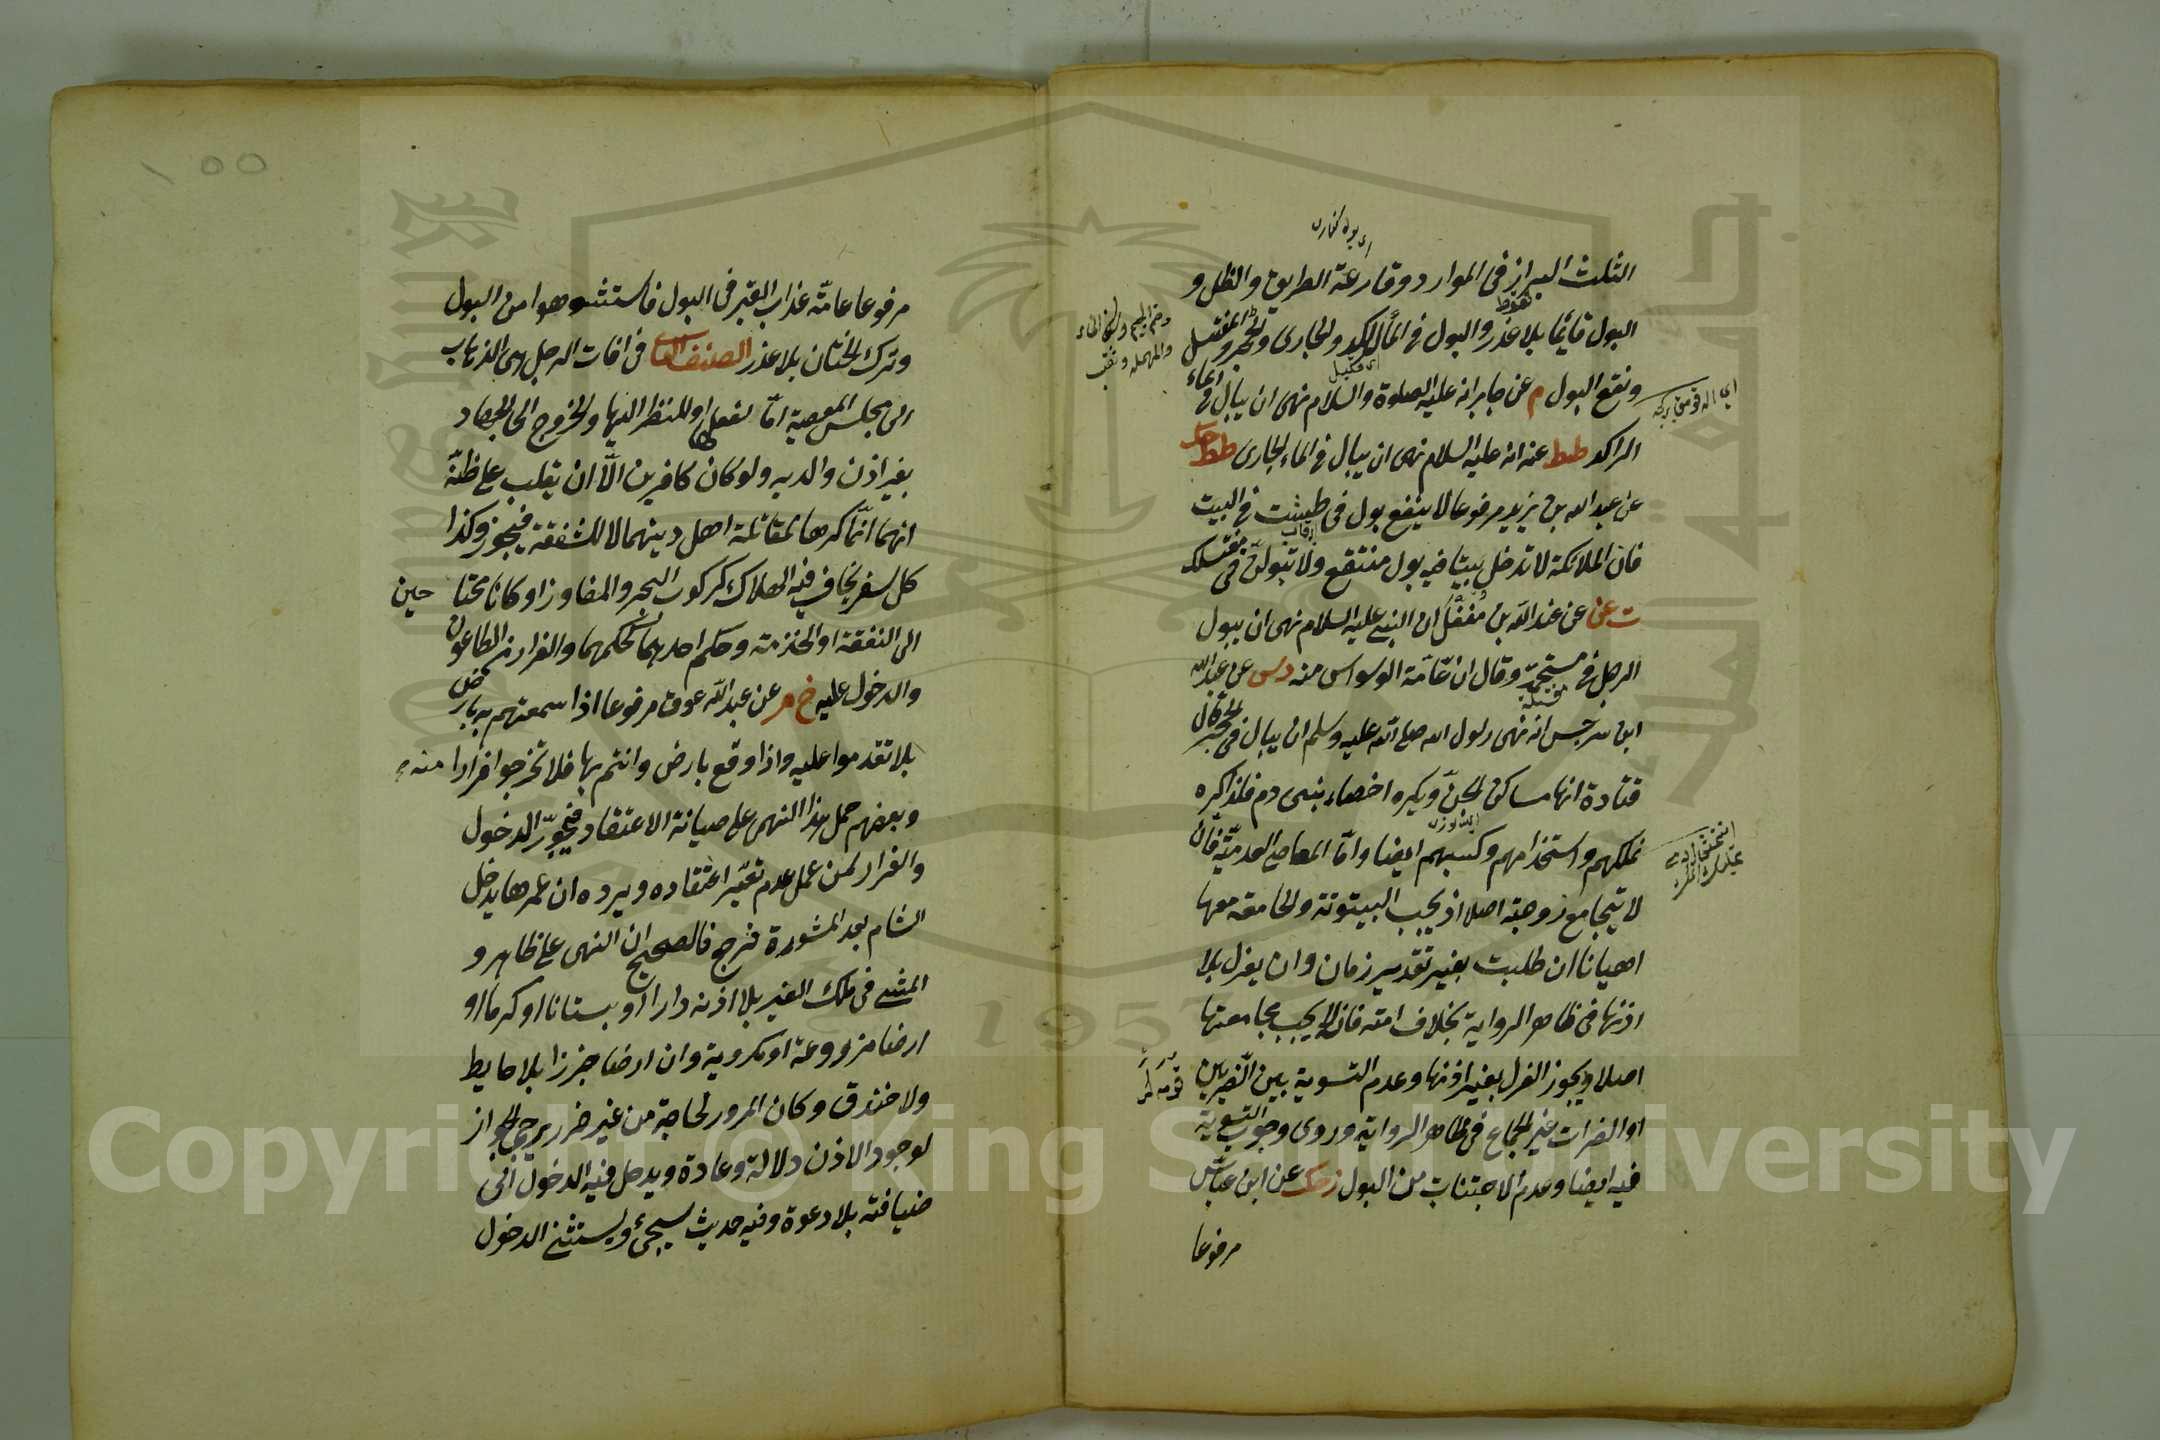 الثلث البراز فى الموارد وقارعة الطريق والظل و
البول قايما بلا عذر والبول فى الماء الراكد والجارى والجحر والمغتسل
ونقع البول م عن جابر انه عليه الصلوة والسلام نهى ان يبال فى الماء
الراكد طط عنه انه عليه السلام نهى ان يبال فى الماء الجارى طط حك
عن عبد الله بن يزيد مرفوعا لا ينقع بول فى طشت فى البيت
فان الملائكة لا تدخل بيتا فيه بول منتقع ولا تبولن فى مغتسلك
ت عن عبد الله بن مغفل ان النبى عليه السلام نهى ان يبول
الرجل فى مستحمه وقال ان عامة الوسواس منه دس عن عبد الله
ابن سرجس انه نهى رسول الله صلى الله عليه وسلم ان يبال فى الجحر قال
قتادة انها مساكن الجن ويكره اخصاء بنى ادم فلذا كره
تملكهم واستخدامهم وكسبهم ايضا واما المعاصى العدمية فان
لا يجامع زوجته اصلا اذ يجب البيتوتة والمجامعة معها
احيانا ان طلبت بغير تقدير زمان وان يعزل بلا
اذنها فى ظاهر الرواية بخلاف امته فانه لا يجب مجامعتها
اصلا ويجوز العزل بغير اذنها وعدم التسوية بين الضرتين
او الضرات غير الجماع فى ظاهر الرواية وروى وجوب التسوية
فيه ايضا وعدم الاجتناب من البول زحك عن ابن عباس
مرفوعا
مرفوعا عامة عذاب القبر فى البول فاستنزهوا من البول
وترك الختان بلا عذر الصنف الثامن فى افات الرجل هى الذهاب
الى مجلس المعصية اما لفعلها او للنظر اليها والخروج الى الجهاد
بغير اذن والديه ولو كان كافرين الا ان يغلب على ظنه
انهما انما كرها لمقاتلة اهل دينهما لا للشفقة فيجوز وكذا
كل سفر يخاف فيه الهلاك كركوب البحر والمفاوز او كانا محتا جين
الى النفقة او الخدمة وحكم احدهما كحكمهما والفرار من الطاعون
والدخول عليه خ م عن عبد الله عوف مرفوعا اذا سمعتم به بارض
بلا تقدموا عليه واذا وقع بارض وانتم بها فلا تخرجوا فرارا منه
وبعضهم حمل هذا النهى على صيانة الاعتقاد فيجوز الدخول
والفرار لمن عمل عدم تغير اعتقاده ويرده ان عمر ها يدخل
الشام بعد المشورة فرجع فالصحيح ان النهى على ظاهره و
المشى فى ملك الغير بلا اذنه دارا او بستانا او كرما او
ارضا مزروعة او مكروبة وان ارضا جرزا بلا حايط
ولا خندق وكان المرور لحاجة من غير ضرر يرجى الجواز
لوجود الاذن دلالة وعادة ويدخل فيه الدخول الى
ضيافته بلا دعوة وفيه حديث سيجئ ويستثنى الدخول
Copyright © King Saud University
1957